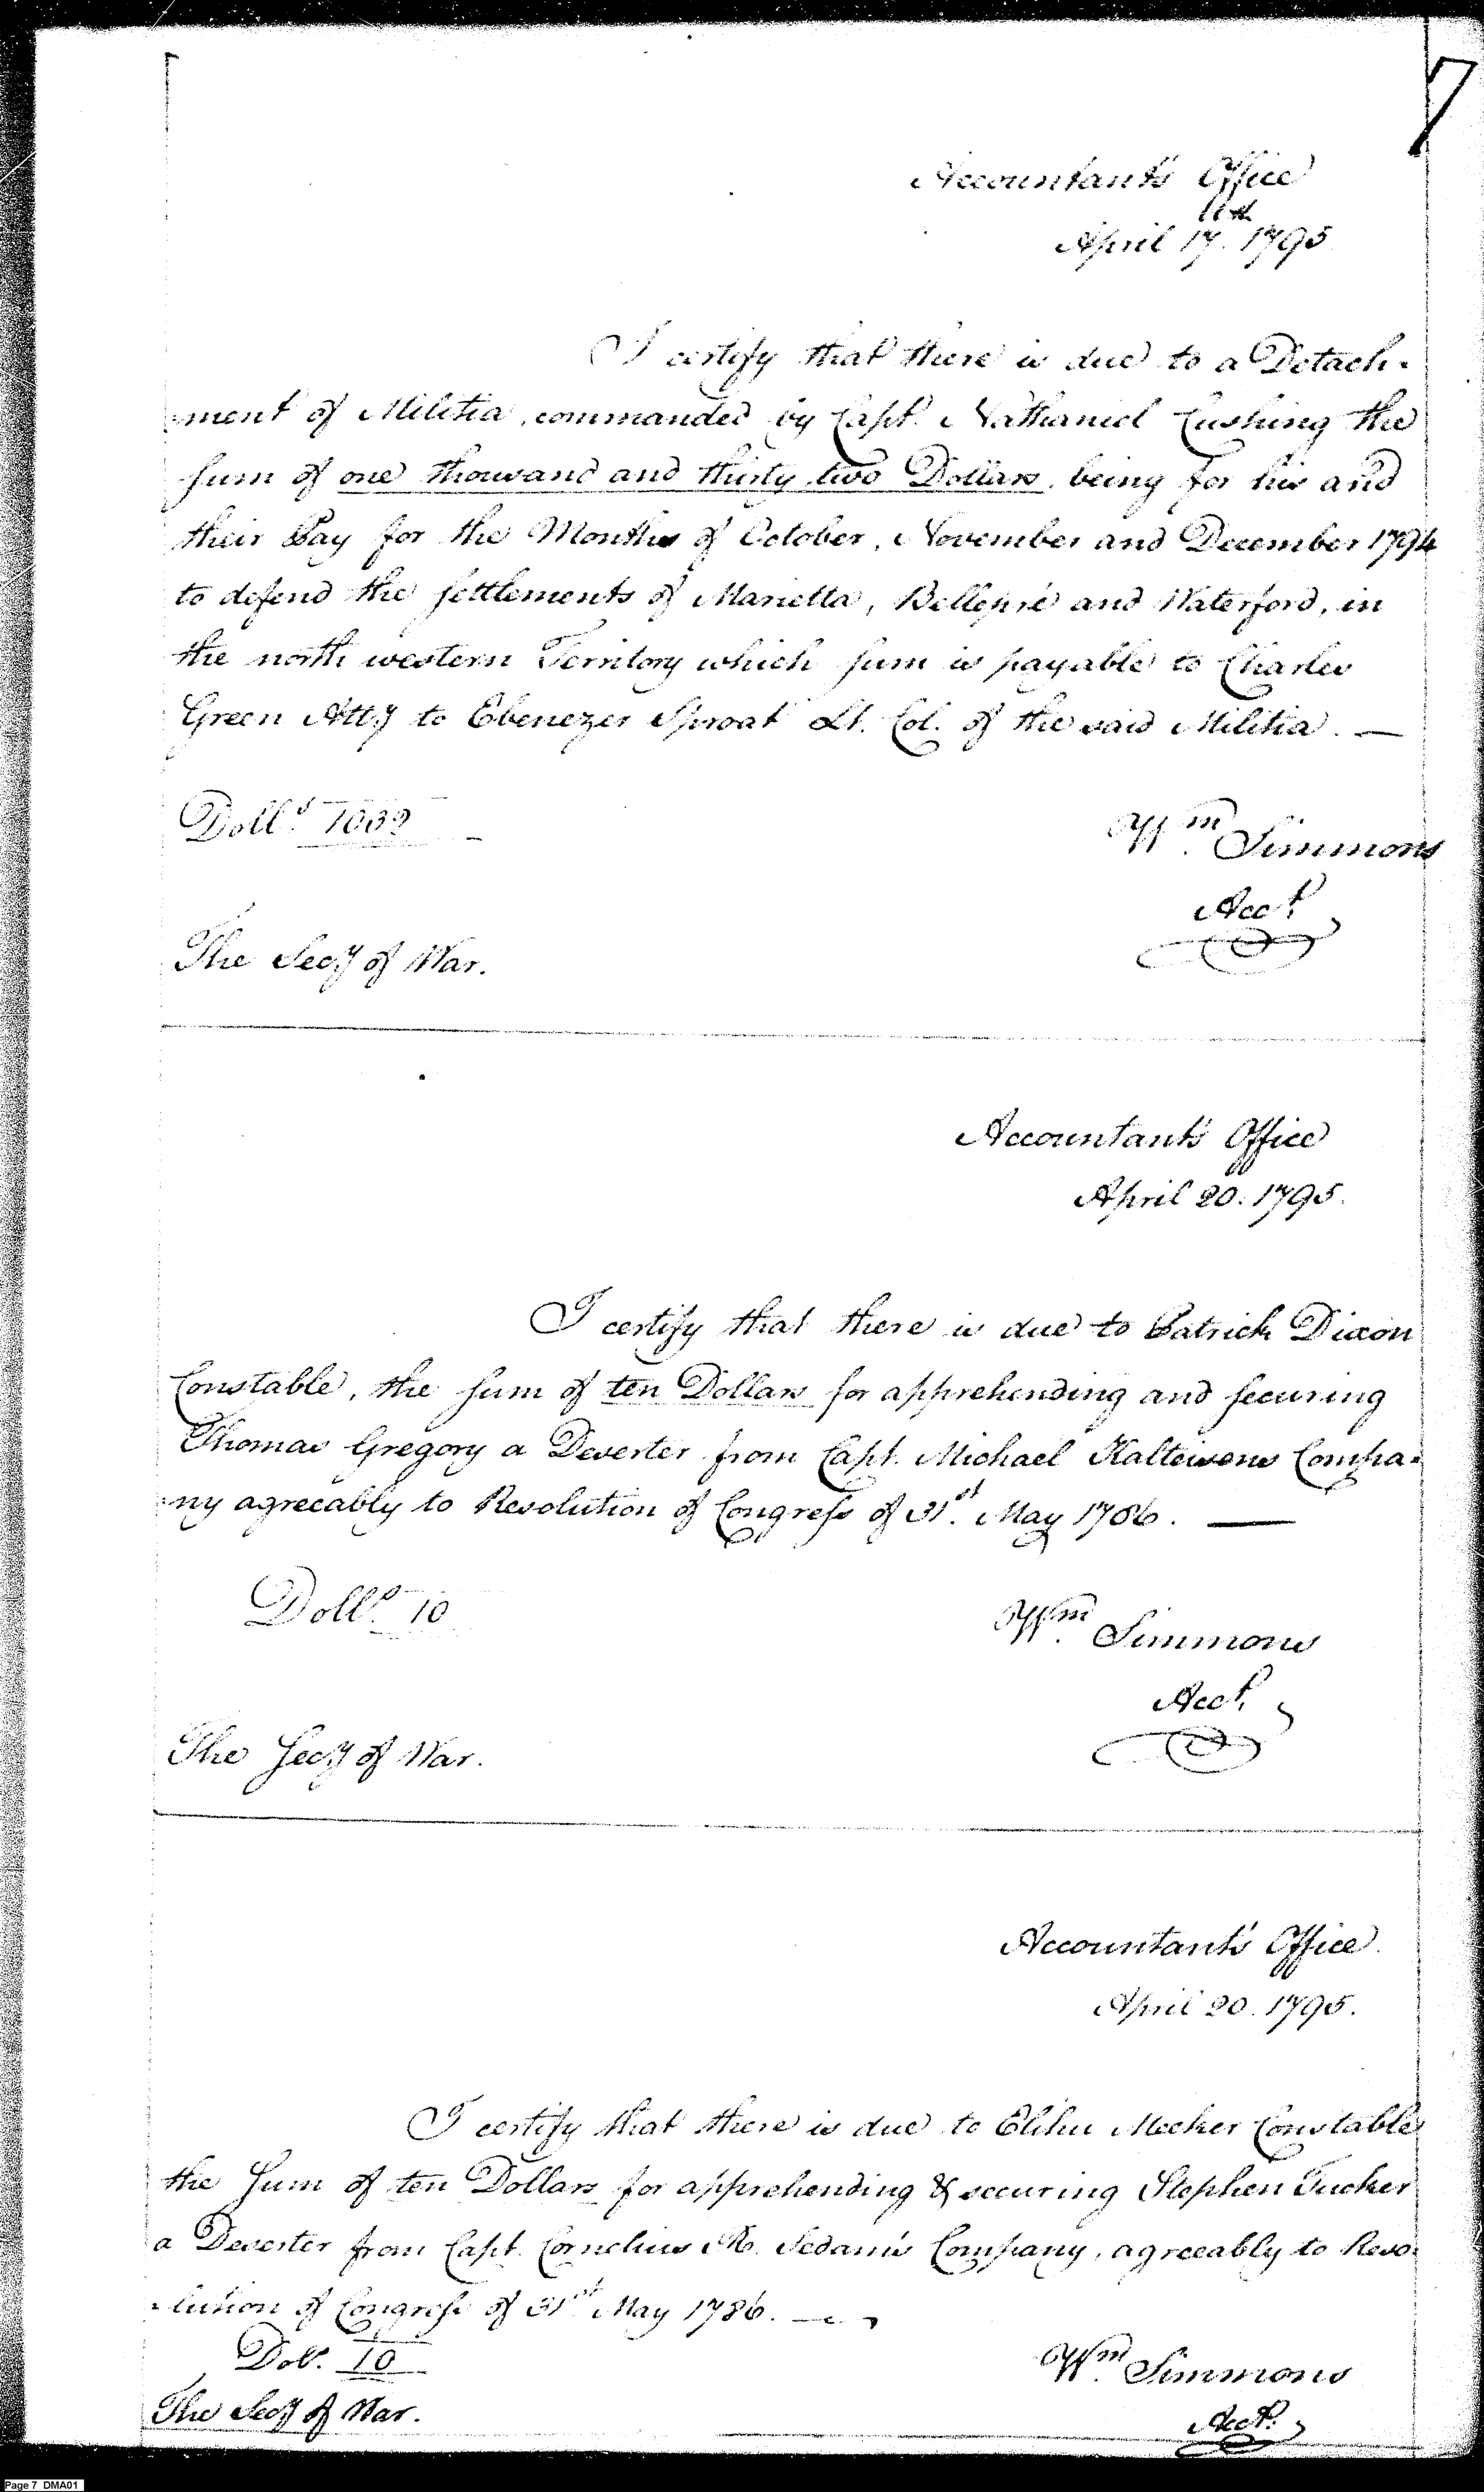 7
Accountant's Office
11th
April 17. 1795
I certify that there is due to a Detach-
-ment of Militia, commanded by Capt. Nathaniel Cushing the
sum of one thousand and thirty two Dollars, being for his and
their Pay for the Months of October, November and December 1794
to defend the settlements of Marietta, Bellepré and Waterford, in
the north western Territory which sum is payable to Charles
Green Atty to Ebenezer Sproat Lt. Col. of the said Militia. —
Dolls. 1032
Wm. Simmons
Acct.
The Secy of War.
Accountant's Office
April 20. 1795.
I certify that there is due to Patrick Dixon
Constable, the sum of ten Dollars for apprehending and securing
Thomas Gregory a Deserter from Capt. Michael Kalteisens Compa-
-ny agreeably to Resolution of Congress of 31st. May 1786. —
Dolls. 10
Wm. Simmons
Acct.
The Secy of War.
Accountant's Office.
April 20. 1795.
I certify that there is due to Elihu Meeker Constable
the Sum of ten Dollars for apprehending & securing Stephen Tucker
a Deserter from Capt. Cornelius R. Sedam's Company, agreeably to Reso-
-lution of Congress of 31st May 1786. —
Dol. 10
Wm. Simmons
The Secy of War.
Acct.
Page 7 DMA01